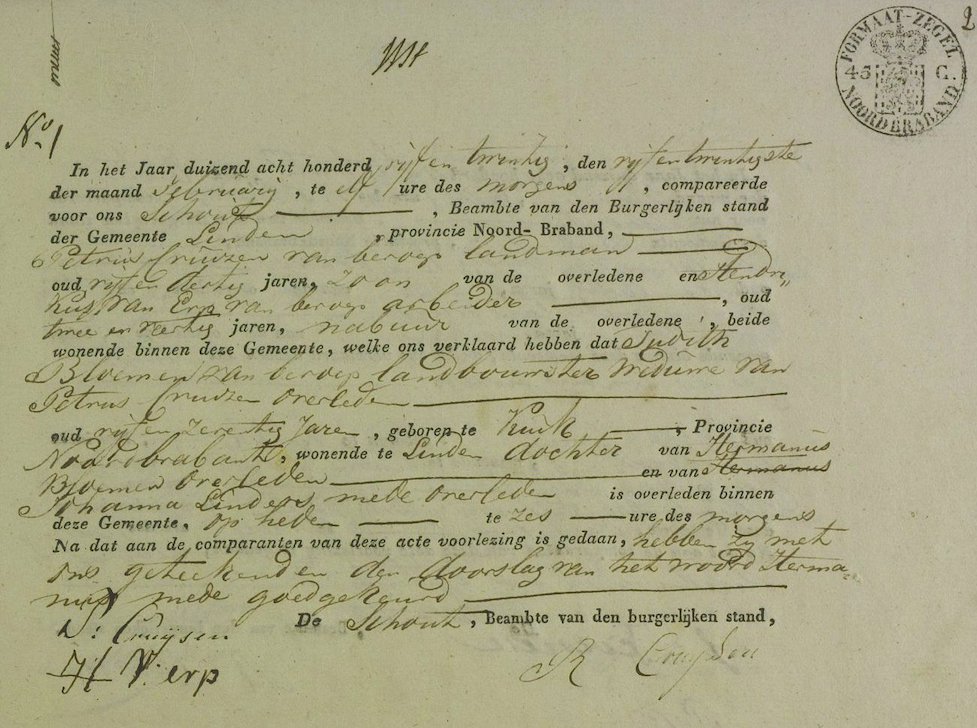 2
FORMAAT-ZEGEL
45 C.
NOORDBRABAND
No. 1
In het Jaar duizend acht honderd vyf en twintig, den vyf en twintigste
der maand February, te elf ure des morgens, compareerde
voor ons Schout, Beambte van den Burgerlyken stand
der Gemeente Linden, provincie Noord-Braband,
Petrus Cruizen van beroep landman
oud vyf en dertig jaren, zoon van de overledene en Hendri„
kus van Erp van beroep arbeider, oud
twee en veertig jaren, nabuur van de overledene, beide
wonende binnen deze Gemeente, welke ons verklaard hebben dat Judith
Bloemen van beroep landbouwster Weduwe van
Petrus Cruizen overleden
oud vyf en zeventig Jaren, geboren te Kuik, Provincie
Noordbrabant, wonende te Linden dochter van Hermanus
Bloemen overleden en van Hermanus
Johanna Linders mede overleden is overleden binnen
deze Gemeente, op heden te zes ure des morgens
Na dat aan de comparanten van deze acte voorlezing is gedaan, hebben zy met
ons geteekend en den doorslag van het woord Herma„
nus mede goedgekeurd
De Schout, Beambte van den burgerlijken stand,
P: Cruijsen
H V. erp
R Cruijsen